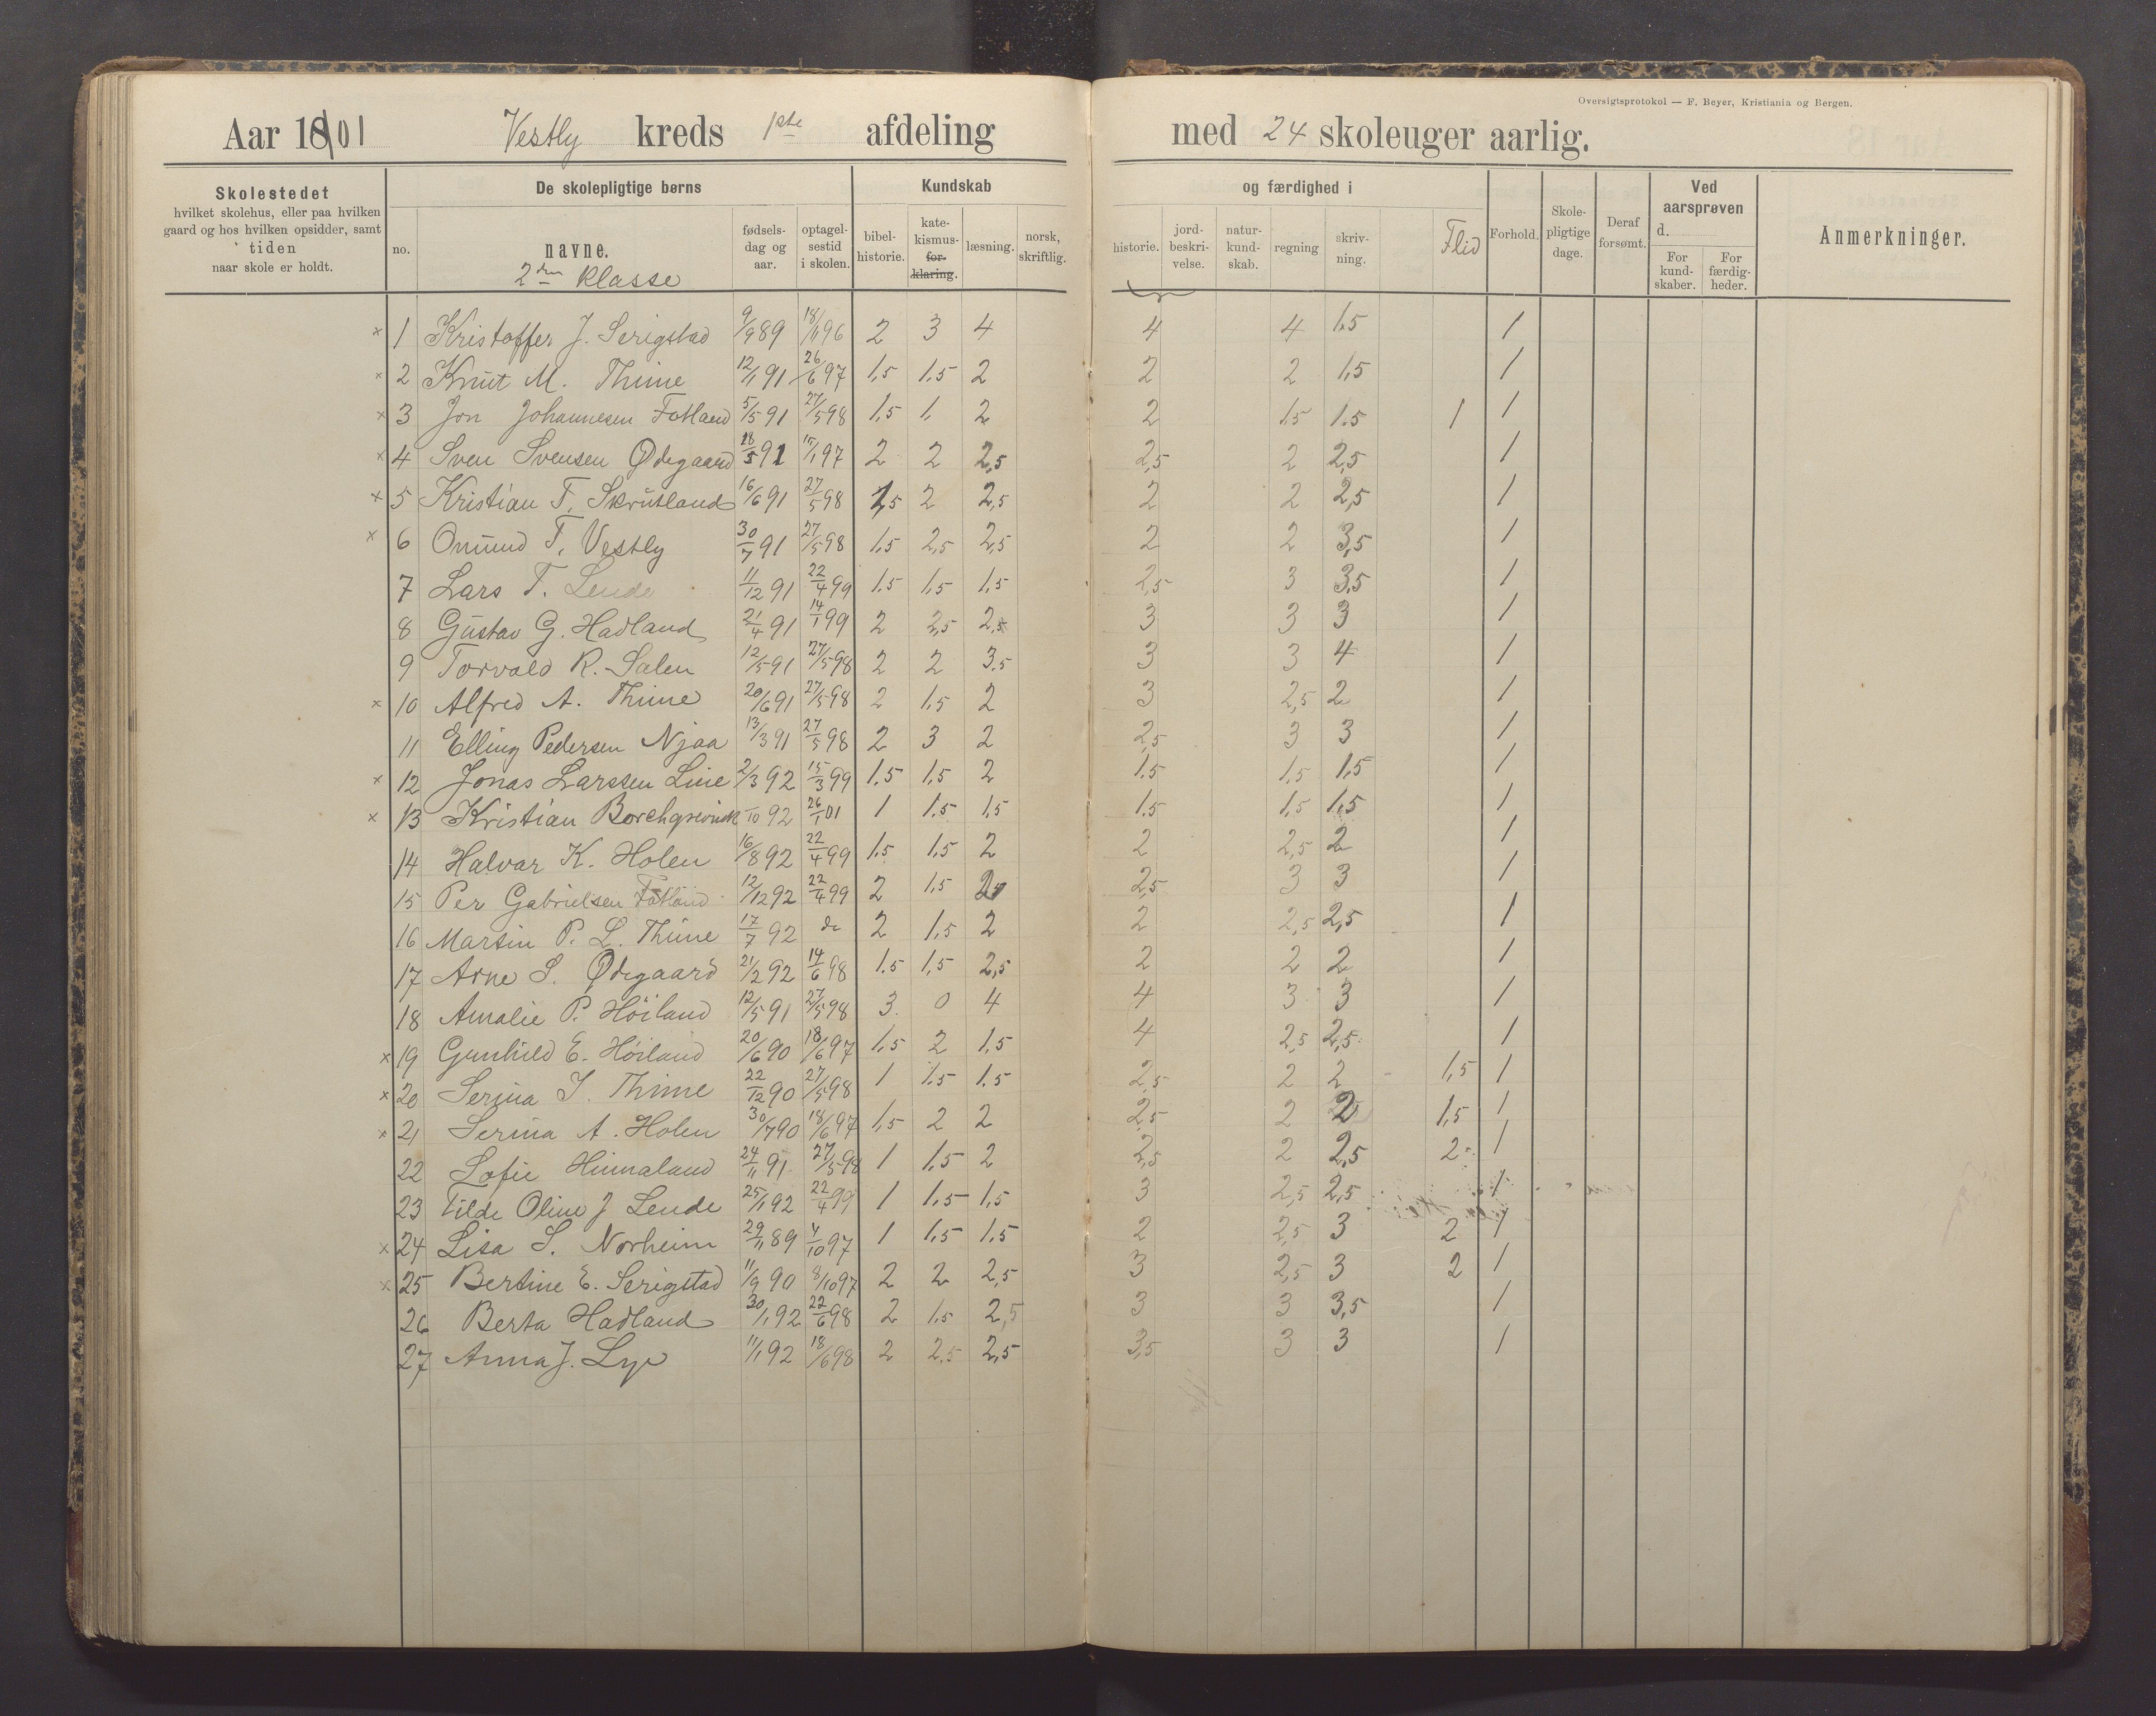 Oversigtsprotokol — F. Beyer, Kristiania og Bergen.
Aar 1801 Vestly kreds 1ste afdeling med 24 skoleuger aarlig.
Skolestedet hvilket skolehus, eller paa hvilken gaard og hos hvilken opsidder, samt tiden naar skole er holdt.
De skolepligtige børns
no. navne. fødselsdag og aar. optagelsestid i skolen.
2den klasse
Kundskab og færdighed i
bibelhistorie. katekismusforklaring. læsning. norsk, skriftlig. historie. jordbeskrivelse. naturkundskab. regning skrivning. Flid Forhold. Skolepligtige dage. Deraf forsømt.
Ved aarsprøven d.
For kundskaber. For færdigheder.
Anmerkninger.
x 1 Kristoffer J. Serigstad 9/9 89 18/11 96 2 3 4 4 4 1.5 1
x 2 Knut M. Thime 12/11 91 26/6 97 1,5 1.5 2 2 2 1,5 1
x 3 Jon Johannesen Fotland 5/5 91 27/5 98 1,5 1, 2 2 1,5 1.5 1 1
x 4 Sven Svensen Ødegaard 18/5 91 15/1 97 2 2 2,5 2,5 2 2,5 1
x 5 Kristian T. Skrutland 16/6 91 27/5 98 1,5 2 2,5 2 2 2,5 1
x 6 Omund T. Vestly 30/7 91 27/5 98 1,5 2,5 2,5 2 2 3,5 1
7 Lars T. Lende 11/12 91 22/4 99 1.5 1,5 1,5 2,5 3 3,5 1
8 Gustav G. Hadland 21/4 91 14/1 99 2 2,5 2,5 3 3 3 1
9 Torvald R. Salen 12/5 91 27/5 98 2 2 3.5 3 3 4 1
x 10 Alfred A. Thime 20/6 91 27/5 98 2 1,5 2 3 2,5 2 1
11 Elling Pedersen Njaa 13/3 91 27/5 98 2 3 2 2,5 3 3 1
x 12 Jonas Larssen Line 2/3 92 15/3 99 1.5 1,5 2 1.5 1,5 1,5 1
x 13 Kristian Borchgrevink /10 92 26/1 01 1 1.5 1,5 1.5 1,5 1,5 1
14 Halvar K. Holen 16/8 92 22/4 99 1.5 1,5 2 2 2,5 2 1
15 Per Gabrielsen Fotland 12/12 92 22/4 99 2 1,5 2 2,5 3 3 1
16 Martin P. L. Thime 17/7 92 do 2 1,5 2 2 2,5 2,5 1
17 Arne S. Ødegaard 21/2 92 14/6 98 1.5 1,5 2,5 2 2 2 1
18 Amalie P. Höiland 12/5 91 27/5 98 3. 0 4 4 3 3 1
x 19 Gunhild E. Höiland 20/6 90 18/6 97 1,5 2 1,5 4 2,5 2,5 1
x 20 Serina I. Thime 22/12 90 27/5 98 1 1.5 1.5 2,5 2 2 1,5 1
x 21 Serina A. Holen 30/7 90 18/6 97 1,5 2 2 2,5 2 2 1,5 1
22 Sofie Hinnaland 24/11 91 27/5 98 1 1,5 2 2,5 2 2,5 2 1
23 Tilde Oline J Lende 25/1 92 22/4 99 1 1,5 1,5 3 2,5 2,5 1
x 24 Lisa S. Norheim 29/11 89 4/10 97 1 1,5 1.5 2 2,5 3 2 1
x 25 Bertine E. Serigstad 11/9 90 8/10 97 2 2 2,5 3 2,5 3 2 1
26 Berta Hadland 30/1 92 22/6 98 2 1,5 2,5 3 3 3,5 1
27 Anna J. Lye 11/1 92 18/6 98 2 2,5 2,5 3,5 3 3 1